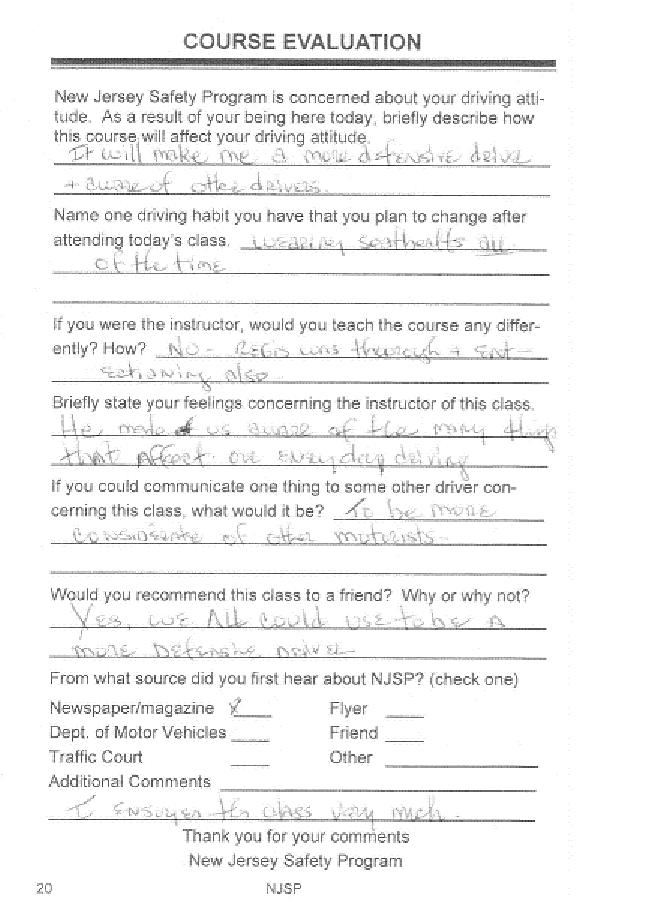 COURSE EVALUATION
New Jersey Safety Program is concerned about your driving atti-
tude. As a result of your being here today, briefly describe how
this course will affect your driving attitude.
It will make me a more defensive driver
+ aware of other drivers.
Name one driving habit you have that you plan to change after
attending today's class. wearing seatbealts all
of the time
If you were the instructor, would you teach the course any differ-
ently? How? No - Regis was thorough +
also
Briefly state your feelings concerning the instructor of this class.
He made us aware of the many things
that affect our everyday driving
If you could communicate one thing to some other driver con-
cerning this class, what would it be? To be more
considerate of other motorists.
Would you recommend this class to a friend? Why or why not?
Yes, we All could use to be a
more Defensive driver
From what source did you first hear about NJSP? (check one)
Newspaper/magazine X Flyer
Dept. of Motor Vehicles Friend
Traffic Court Other
Additional Comments
I enjoyed this class very much.
Thank you for your comments
New Jersey Safety Program
20 NJSP